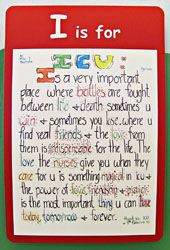 I is for
I C U :
Is a very important
place where battles are fought
between life + death sometimes u
win + sometimes you lose. where u
find real friends + the love from
them is indispensable for the life. The
love the nurses give you what they
care for u is something magical in icu +
the power of love, friendship + 
is the most important thing u can have
today, tomorrow + forever.